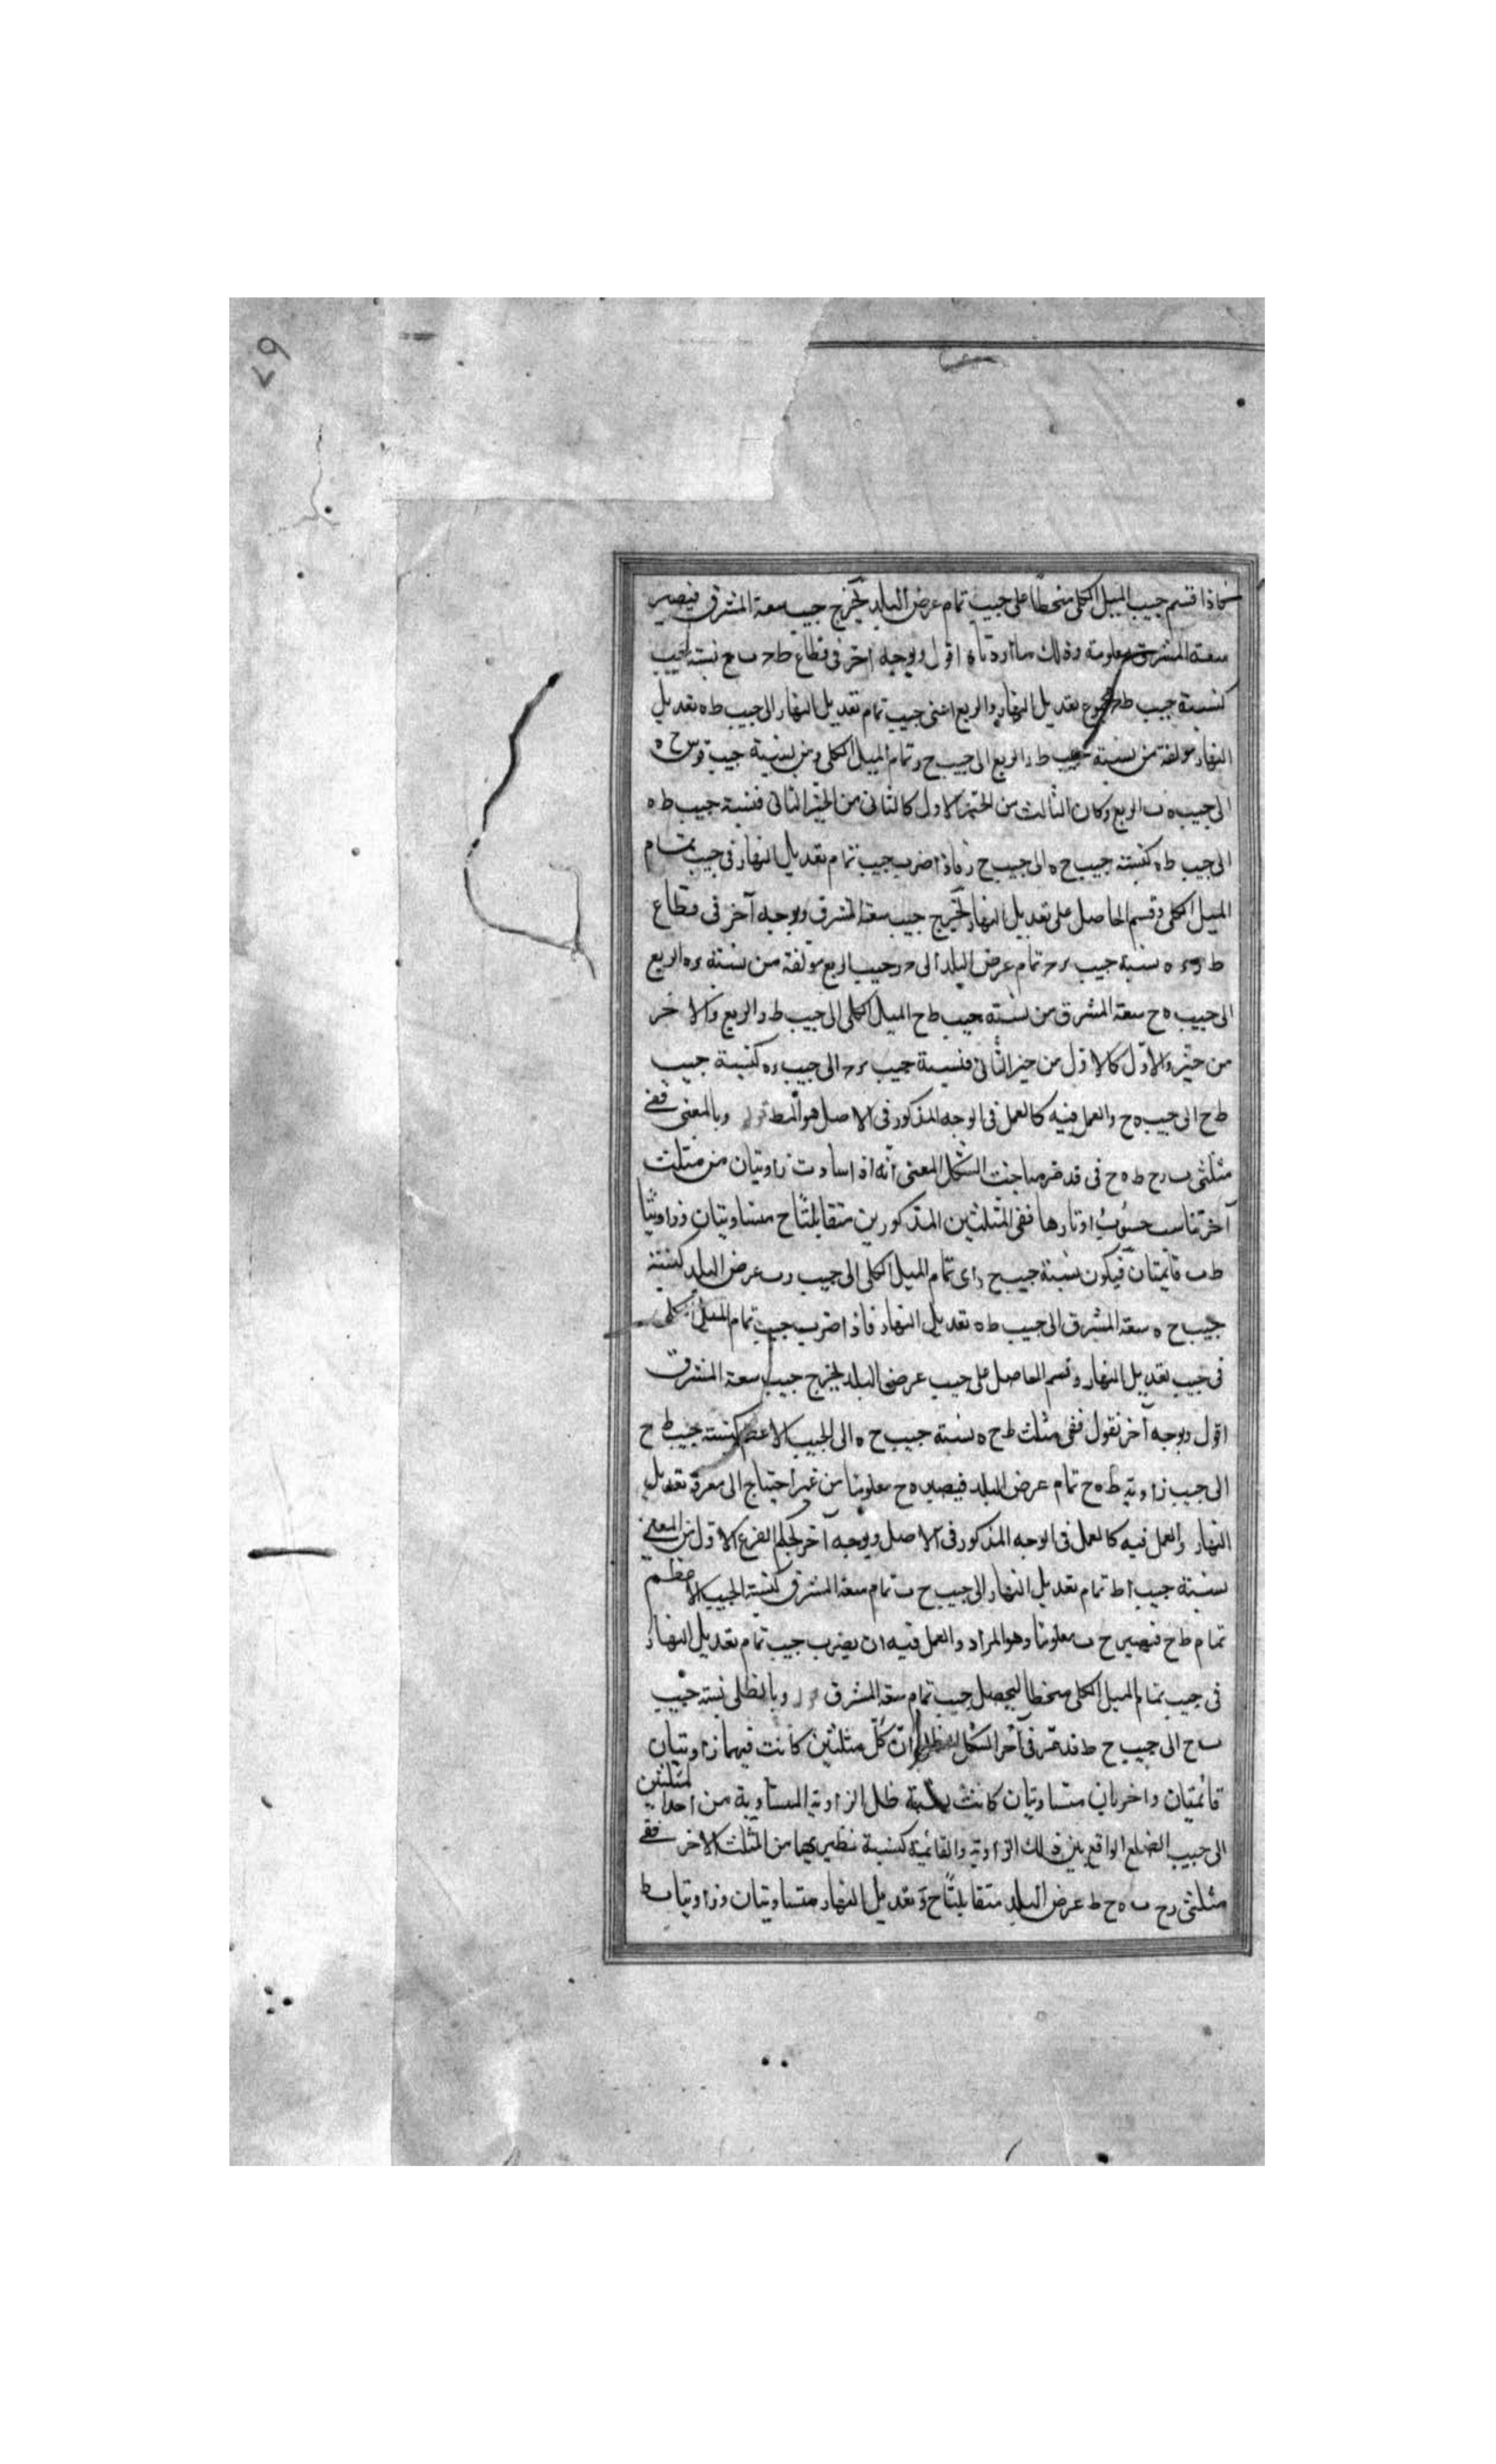 ٦٧
فاذا قسم جيب الميل الكلى منحطا على جيب تمام عرض البلد يخرج جيب سعة المشرق فيصير
سعة المشرق معلومة وذلك ما اردناه اقول وبوجه آخر فى قطاع ط نسبة لجيب
كنسبة جيب ط مجموع تعديل النهار والربع اعنى جيب تمام تعديل النهار الى جيب ط ه تعديل
النهار مولفة من نسبة جيب ط د الربع الى جيب ح ر تمام الميل الكلى ومن نسبة جيب قوس ح ه
الى جيب ه ب الربع وكان الثالث من الحيز الاول كالثانى من الحيز الثانى فنسبة جيب ط ه
الى جيب ط ه كنسبة جيب ح ه الى جيب ح ر فاذا ضرب جيب تمام تعديل النهار فى جيب تمام
الميل الكلى وقسم الحاصل على تعديل النهار يخرج جيب سعة المشرق وبوجه آخر فى قطاع
نسبة جيب تمام عرض البلد الى جيب الربع مولفة من نسبة ره الربع
الى جيب ه ح سعة المشرق من نسبة جيب ط ح الميل الكلى الى جيب ط د الربع والاخر
من حيز والاول كالاول من حيز الثانى فنسبة جيب الى جيب ره كنسبة جيب
ط ح الى جيب ه ح والعمل فيه كالعمل فى الوجه المذكور فى الاصل هو المط وبالمعنى ففى
مثلثى ب رح ط ه ح فى قد مر مباحث الشكل المعنى انه اذا ساوت زاويتان من مثلث
آخر تناسب جيوب اوتارها ففى المثلثين المذكورين متقابلتا ح متساويتان وزاويتا
ط ب قائمتان فيكون نسبة جيب ح ر اى تمام الميل الكلى الى جيب رب عرض البلد كنسبة
جيب ح ه سعة المشرق الى جيب ط ه تعديل النهار فاذا ضرب جيب تمام الميل الكلى
فى جيب تعديل النهار وقسم الحاصل على جيب عرض البلد يخرج جيب سعة المشرق
اقول وبوجه آخر نقول ففى مثلث ط ح ه نسبة جيب ح ه الى الجيب الاعظم كنسبة جيب ط ح
الى جيب زاوية ط ه ح تمام عرض البلد فيصير ه ح معلوما من غير احتياج الى معرفة تعديل
النهار والعمل فيه كالعمل فى الوجه المذكور فى الاصل وبوجه آخر لحكم الفرع الاول من المعنى
نسبة جيب ا ط تمام تعديل النهار الى جيب ح ب تمام سعة المشرق كنسبة الجيب الاعظم
تمام ط ح فيصير ح ب معلوما وهو المراد والعمل فيه ان يضرب جيب تمام تعديل النهار
فى جيب تمام الميل الكلى منحطا ليحصل جيب تمام سعة المشرق وبالظلى نسبة جيب
ب ح الى جيب ح ط قد مر فى آخر الشكل الظلى ان كل مثلثين كانت فيهما زاويتان
قائمتان واخريان متساويتان كانت نسبة ظل الزاوية المساوية من احد المثلثين
الى جيب الضلع الواقع بين ذلك الزاوية والقائمة كنسبة نظيريهما من المثلث الاخر ففى
مثلثى رح ب ه ح ط عرض البلد متقابلتا ح و تعديل النهار متساويتان وزاويتا ب ط